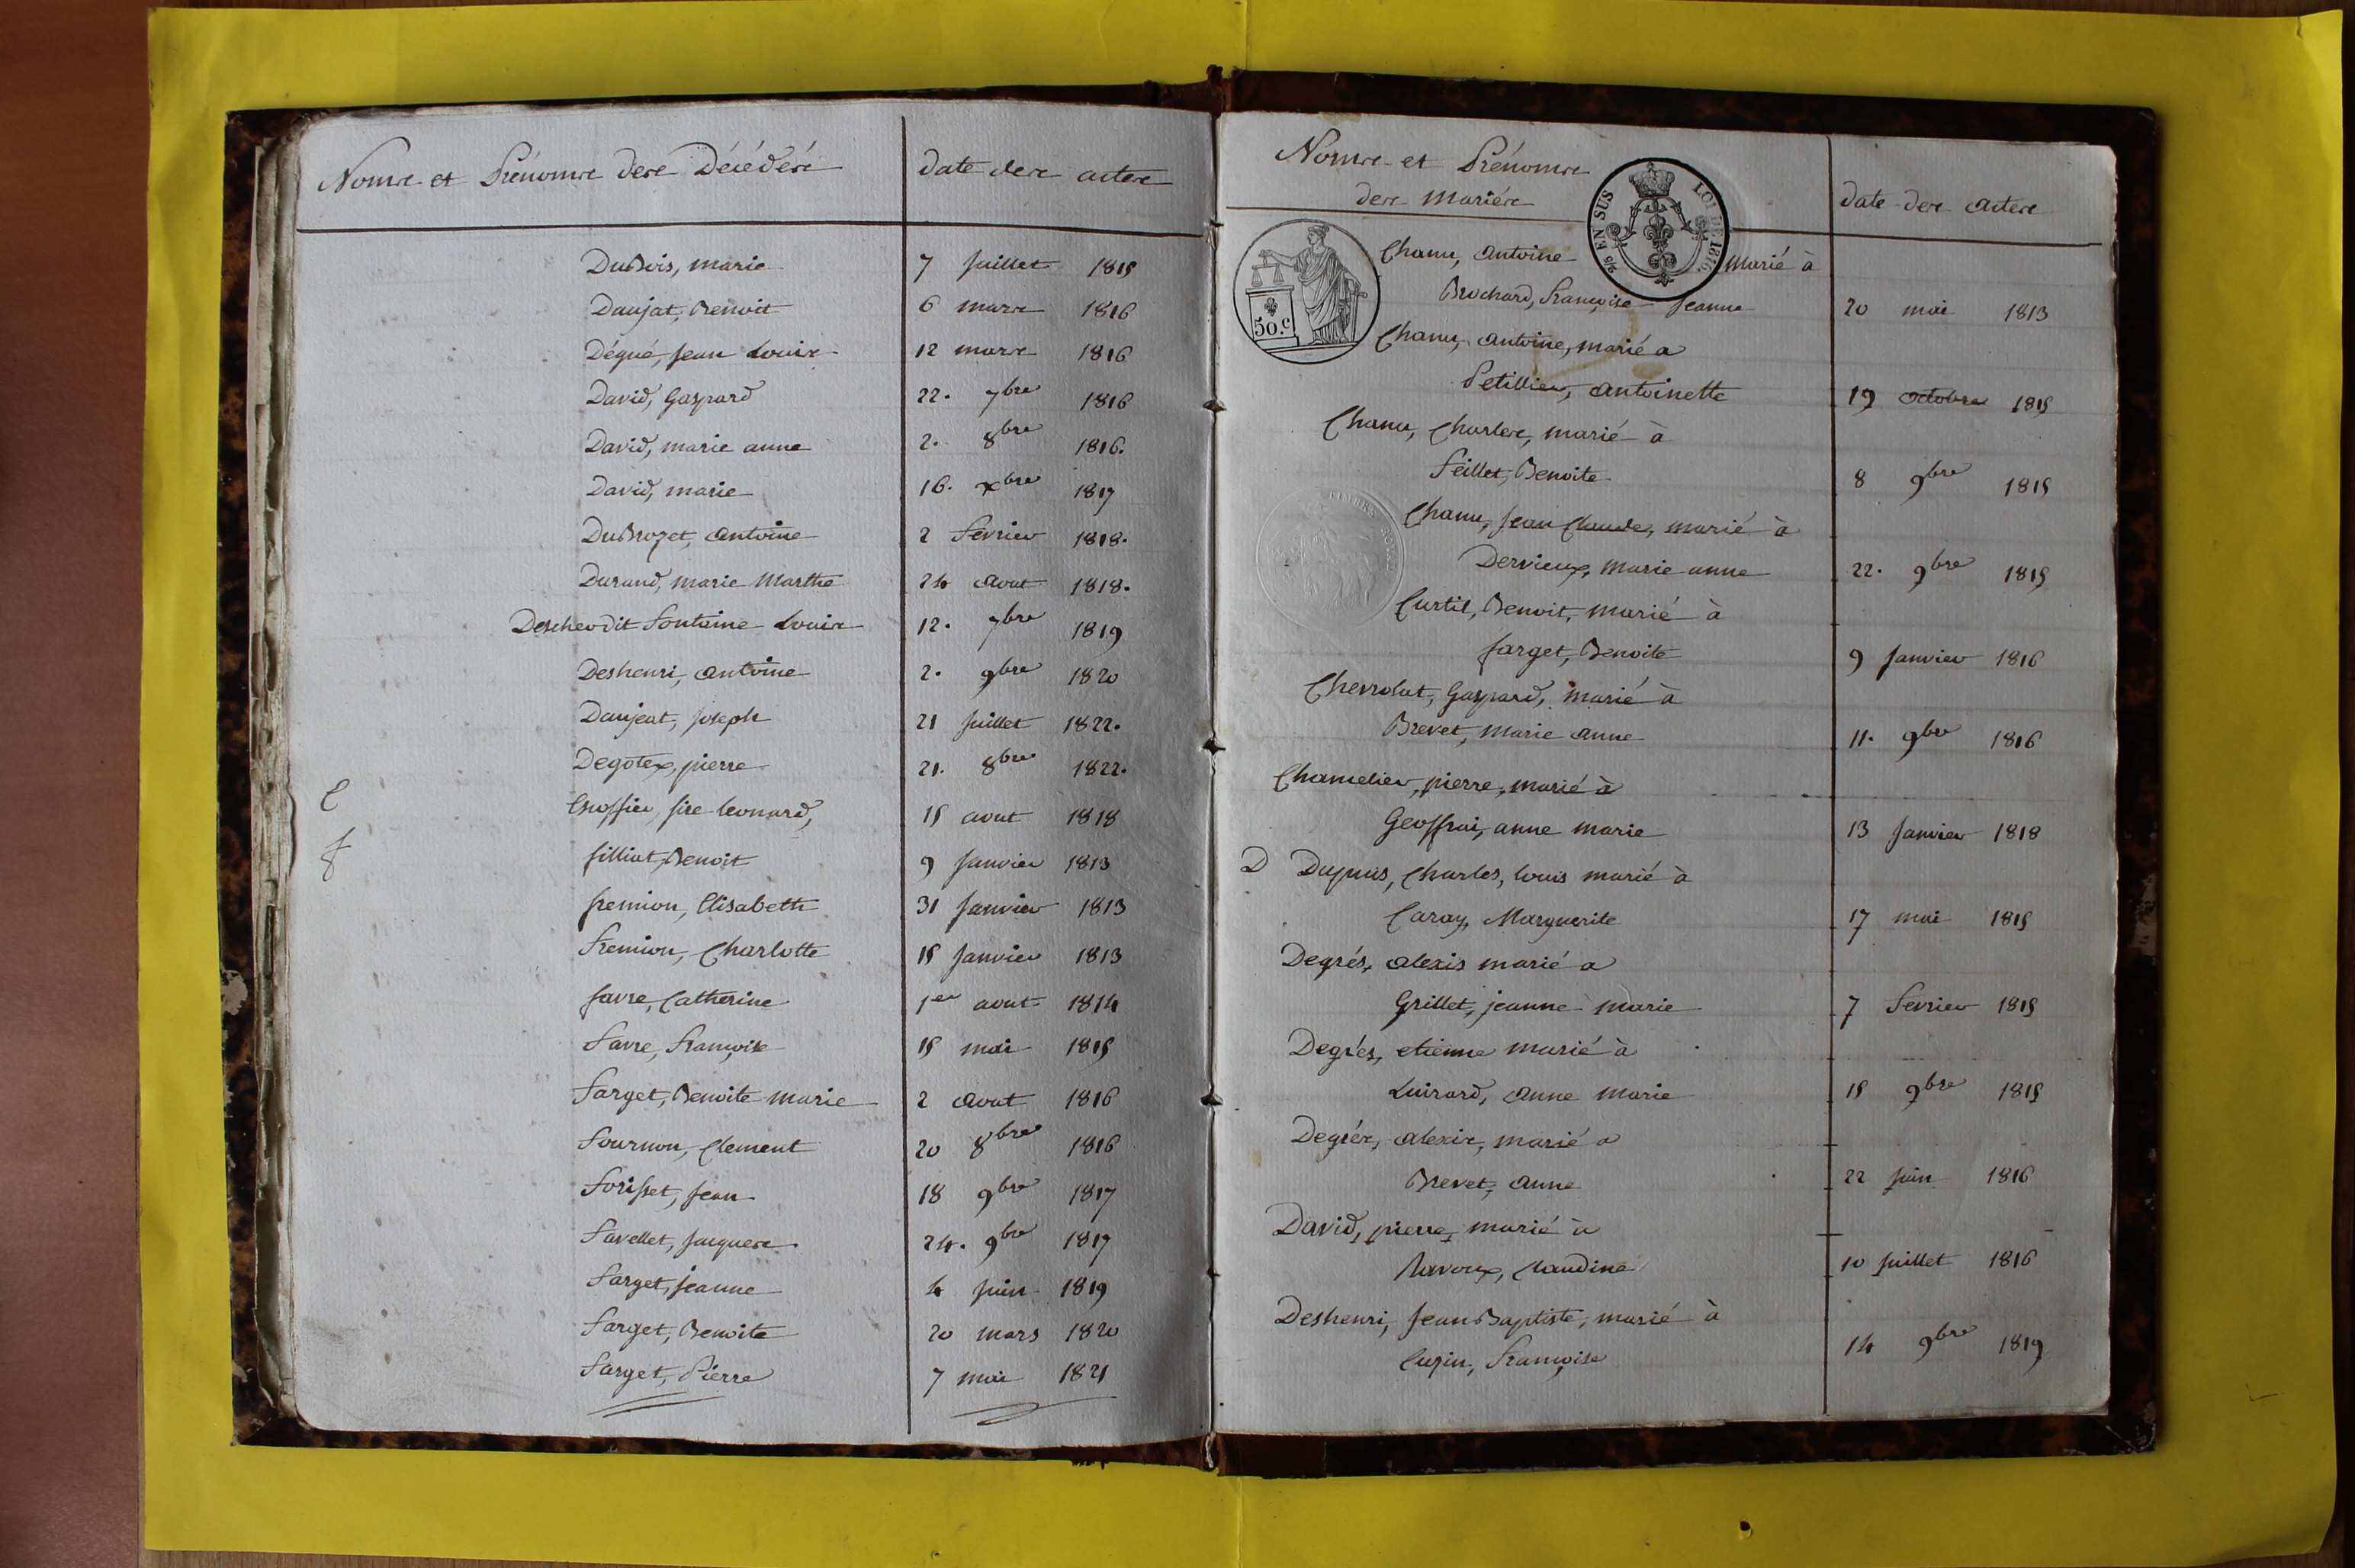 Noms et Prénoms des Décédés
date des actes
DuBois, marie 7 juillet 1815
Daujat, Benoit 6 mars 1816
Dégué, jean Louis 12 mars 1816
David, Gaspard 22. 7bre 1816
David, marie anne 2. 8bre 1816.
David, marie 16. xbre 1817
DuBrozet, antoine 2 fevrier 1818.
Durand, marie Marthe 24 aout 1818.
Descher dit fontaine Louis 12. 7bre 1819
Deshenri, antoine 2. 9bre 1820
Daujeat, joseph 21 juillet 1822.
Degotex, pierre 21. 8bre 1822.
E
leonard, 15 aout 1818
f
filliat, Benoit 9 janvier 1813
fremion, Elisabeth 31 janvier 1813
fremion, Charlotte 15 janvier 1813
favre, Catherine 1er aout 1814
favre, françoise 15 mai 1815
farget, Benoite marie 2 aout 1816
fournon, Clement 20 8bre 1816
forisset, jean 18 9bre 1817
favellet, jacques 24. 9bre 1817
farget, jeanne 4 juin 1819
farget, Benoite 20 mars 1820
farget, Pierre 7 mai 1821
Noms et Prénoms
des mariés
date des actes
2/5 EN SUS LOI DE 1816.
50.c
TIMBRE ROYAL
Chanu, antoine marié à
Brochard, françoise jeanne 20 mai 1813
Chanu, antoine, marié a
Petillier, antoinette 19 octobre 1815
Chanu, Charles, marié à
feillet, Benoite 8 9bre 1815
Chanu, jean Claude, marié à
Dervieux, marie anne 22. 9bre 1815
Curtil, Benoit, marié à
farget, Benoite 9 janvier 1816
Chevrolat, Gaspard, marié à
Brevet, marie anne 11. 9bre 1816
Chamelier, pierre, marié à
Geoffrai, anne marie 13 janvier 1818
D Dupuis, Charles, louis marié à
Caray, Marguerite 17 mai 1815
Degrés, alexis marié a
Grillet, jeanne marie 7 fevrier 1815
Degrés, etienne marié à
Luirard, anne marie 15 9bre 1815
Degrés, alexis, marié a
Brevet, anne 22 juin 1816
David, pierre, marié à
Ravoux, claudine 10 juillet 1816
Deshenri, jean Baptiste, marié à
Cuzin, françoise 14 9bre 1819